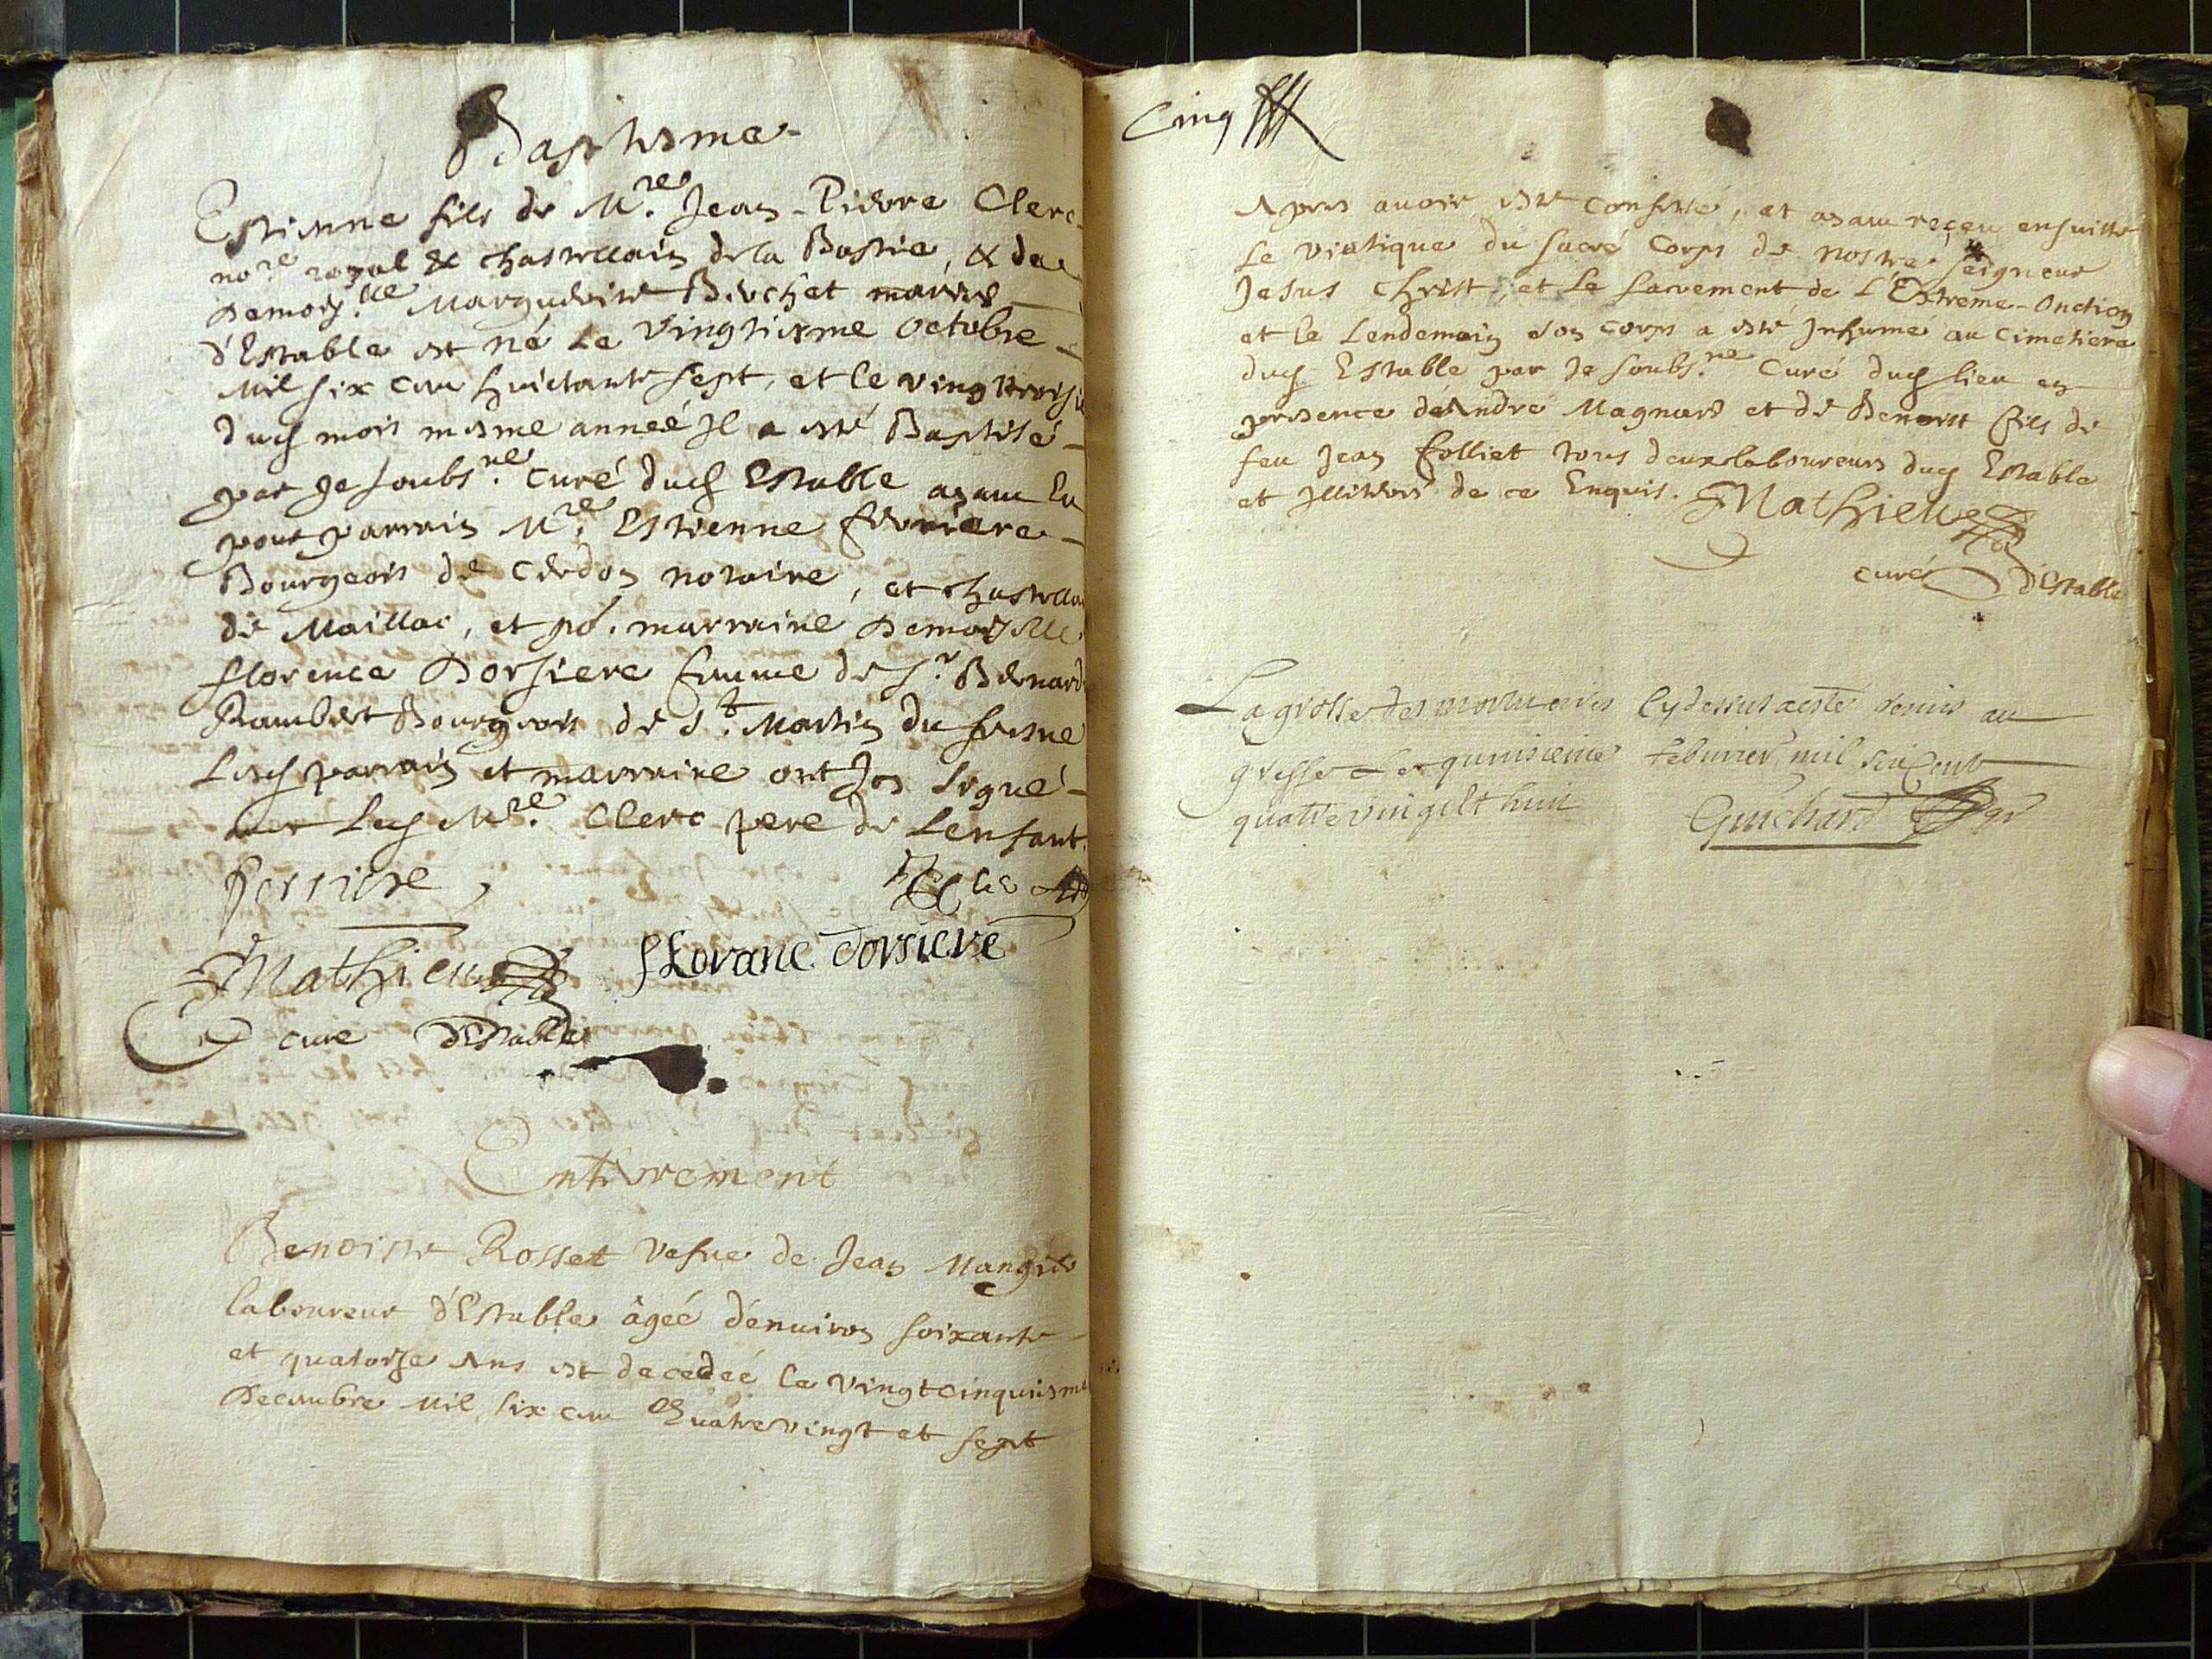 Baptisme
Estienne fils de M.re Jean-Pierre Clerc
no.re royal & chastellain de la Bastie, & de
Demois.lle Marguerite Berchet mariés
d'Estable est né le vingtiesme octobre
mil six cens huictante sept, et le vingt troisie
dud mois mesme année Il a esté Baptisé
par Je soubs.né Curé dud Estable ayant Eu
pour parrain M.re Estienne ferriere
Bourgeois de Cerdon notaire, et chastella
de Maillac, et po. marraine Demoiselle
florence Dorsiere femme de S.r Bernard
Rambert Bourgeois de S.t Martin du fresne
Lesd parrain et marraine ont Icy signé
avec Led M.re Clerc pere de Lenfant.
ferriere
Mathieu
florance dorsiere
curé d'Estable
Enterrement
Benoiste Rosset vefue de Jean Mangié
laboureur d'Estable âgeé d'enuiron soixante
et quatorse Ans est decedeé le vingtcinquiesme
Decembre mil six cens Quatrevingt et sept
Cinq
Apres auoir esté Confessé, et ayant reçeu ensuitte
le viatique du sacré Corps de nostre seigneur
Jesus Christ, et le sacrement de L'Extreme-Onction
et le Lendemain son corps a esté Inhumé au Cimetiere
dud Estable par Je soubs.né Curé dud lieu en
presence de Andre Magnard et de Benoist fils de
feu Jean folliet tous deux laboureurs dud Estable
et Illiterés de ce Enquis. Mathieu
curé d'Estable
La grosse des mortuaires Cy dessus a esté remis au
greffe le quinsieme februrier mil six Cent
quatre vingt et huit Guichard gr